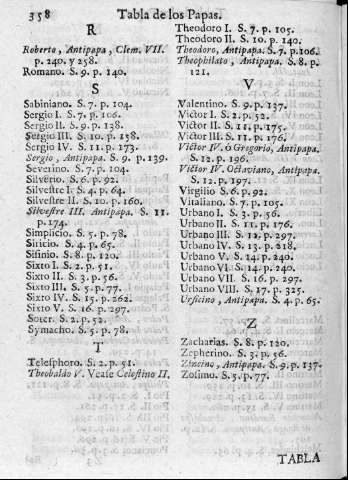 358 Tabla de los Papas.
R
Roberto, Antipapa, Clem. VII.
p. 240. y 258.
Romano. S. 9. p. 140.
S
Sabiniano. S. 7. p. 104.
Sergio I. S. 7. p. 106.
Sergio II. S. 9. p. 138.
Sergio III. S. 10. p. 158.
Sergio IV. S. 11. p. 173.
Sergio, Antipapa. S. 9. p. 139.
Severino. S. 7. p. 104.
Silverio. S. 6. p. 92.
Silvestre I. S. 4. p. 64.
Silvestre II. S. 10. p. 160.
Silvestre III. Antipapa. S. 11
p. 174.
Simplicio. S. 5. p. 78.
Siricio. S. 4. p. 65.
Sisinio. S. 8. p. 120.
Sixto I. S. 2. p. 51.
Sixto II. S. 3. p. 56.
Sixto III. S. 5. p. 77.
Sixto IV. S. 15. p. 262.
Sixto V. S. 16. p. 297.
Soter. S. 2. p. 52.
Symacho. S. 5. p. 78.
T
Telesphoro. S. 2. p. 51.
Theobaldo V. Vease Celestino II.
Theodoro I. S. 7. p. 105.
Theodoro II. S. 10. p. 140.
Theodoro, Antipapa. S. 7. p. 106.
Theophilato, Antipapa. S. 8. p.
121.
V
Valentino. S. 9. p. 137.
Victor I. S. 2. p. 52.
Victor II. S. 11. p. 175.
Victor III. S. 11. p. 176.
Victor IV. ó Gregorio, Antipapa.
S. 12. p. 196.
Victor IV. Octaviano, Antipapa.
S. 12. p. 197.
Virgilio S. 6. p. 92.
Vitaliano. S. 7. p. 105.
Urbano I. S. 3. p. 56.
Urbano II. S. 11. p. 176.
Urbano III. S. 12. p. 297.
Urbano IV. S. 13. p. 218.
Urbano V. S. 14. p. 240.
Urbano VI. S. 14. p. 240.
Urbano VII. S. 16. p. 297.
Urbano VIII. S. 17. p. 325.
Ursicino, Antipapa. S. 4. p. 65.
Z
Zacharias. S. 8. p. 120.
Zepherino. S. 3. p. 56.
Zincino, Antipapa. S. 9. p. 137.
Zosimo. S. 5. p. 77.
TABLA